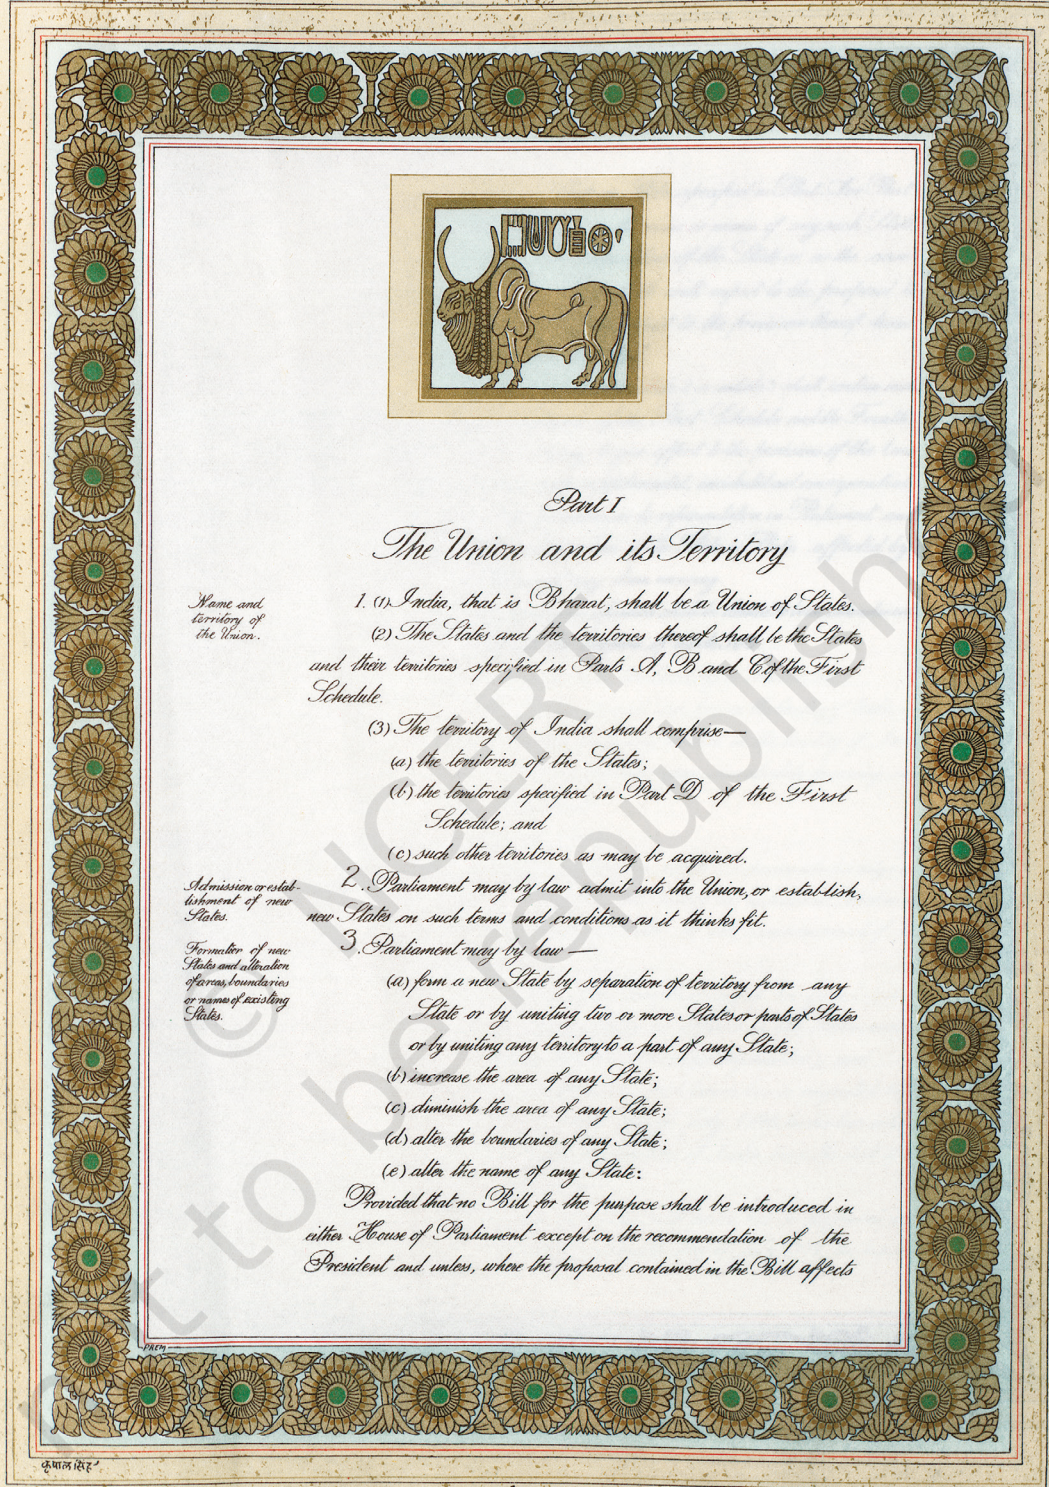 Part I
The Union and its Territory
Name and
territory of
the Union.
1. (1) India, that is Bharat, shall be a Union of States.
(2) The States and the territories thereof shall be the States
and their territories specified in Parts A, B and C of the First
Schedule.
(3) The territory of India shall comprise—
(a) the territories of the States;
(b) the territories specified in Part D of the First
Schedule; and
(c) such other territories as may be acquired.
Admission or estab-
lishment of new
States.
2. Parliament may by law admit into the Union, or establish,
new States on such terms and conditions as it thinks fit.
Formation of new
States and alteration
of areas, boundaries
or names of existing
States.
3. Parliament may by law —
(a) form a new State by separation of territory from any
State or by uniting two or more States or parts of States
or by uniting any territory to a part of any State;
(b) increase the area of any State;
(c) diminish the area of any State;
(d) alter the boundaries of any State;
(e) alter the name of any State:
Provided that no Bill for the purpose shall be introduced in
either House of Parliament except on the recommendation of the
President and unless, where the proposal contained in the Bill affects
PREM
कृपाल सिंह
© NCERT
not to be republished